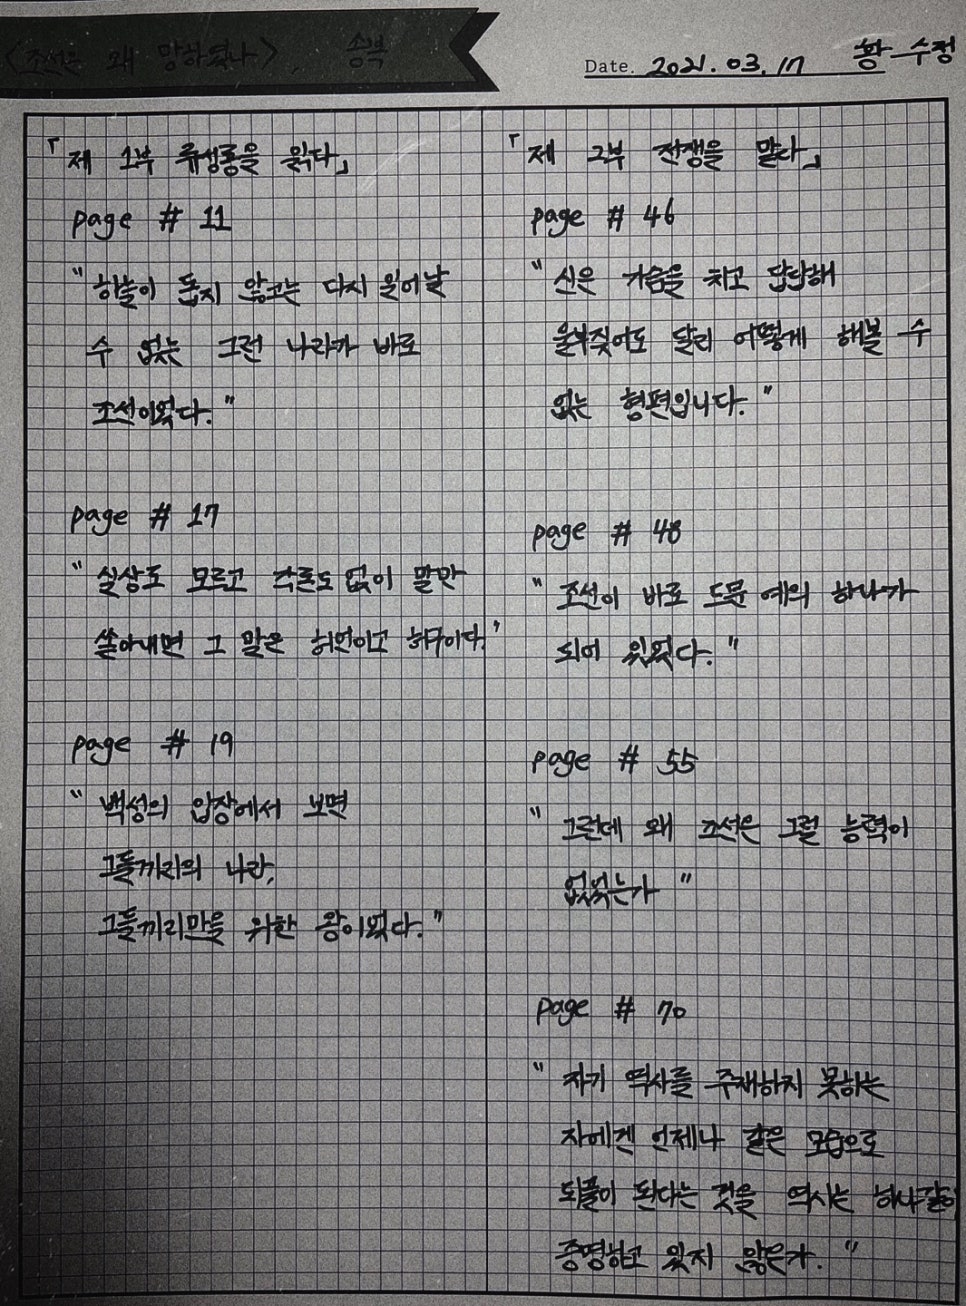 <조선은 왜 망하였나>, 송복
Date. 2021. 03. 17 황수정
「제 1부 류성룡을 읽다」
page # 11
"하늘이 돕지 않고는 다시 일어날
수 없는 그런 나라가 바로
조선이었다."
page # 17
"실상도 모르고 각론도 없이 말만
쏟아내면 그 말은 허언이고 허구이다."
page # 19
"백성의 입장에서 보면
그들끼리의 나라,
그들끼리만을 위한 왕이었다."
「제 2부 전쟁을 말다」
page # 46
"신은 가슴을 치고 답답해
울부짖어도 달리 어떻게 해볼 수
없는 형편입니다."
page # 48
"조선이 바로 드문 예의 하나가
되어 있었다."
page # 55
"그런데 왜 조선은 그럴 능력이
없었는가"
page # 70
"자기 역사를 주재하지 못하는
자에겐 언제나 같은 모습으로
되풀이 된다는 것을 역사는 하나같이
증명하고 있지 않은가."